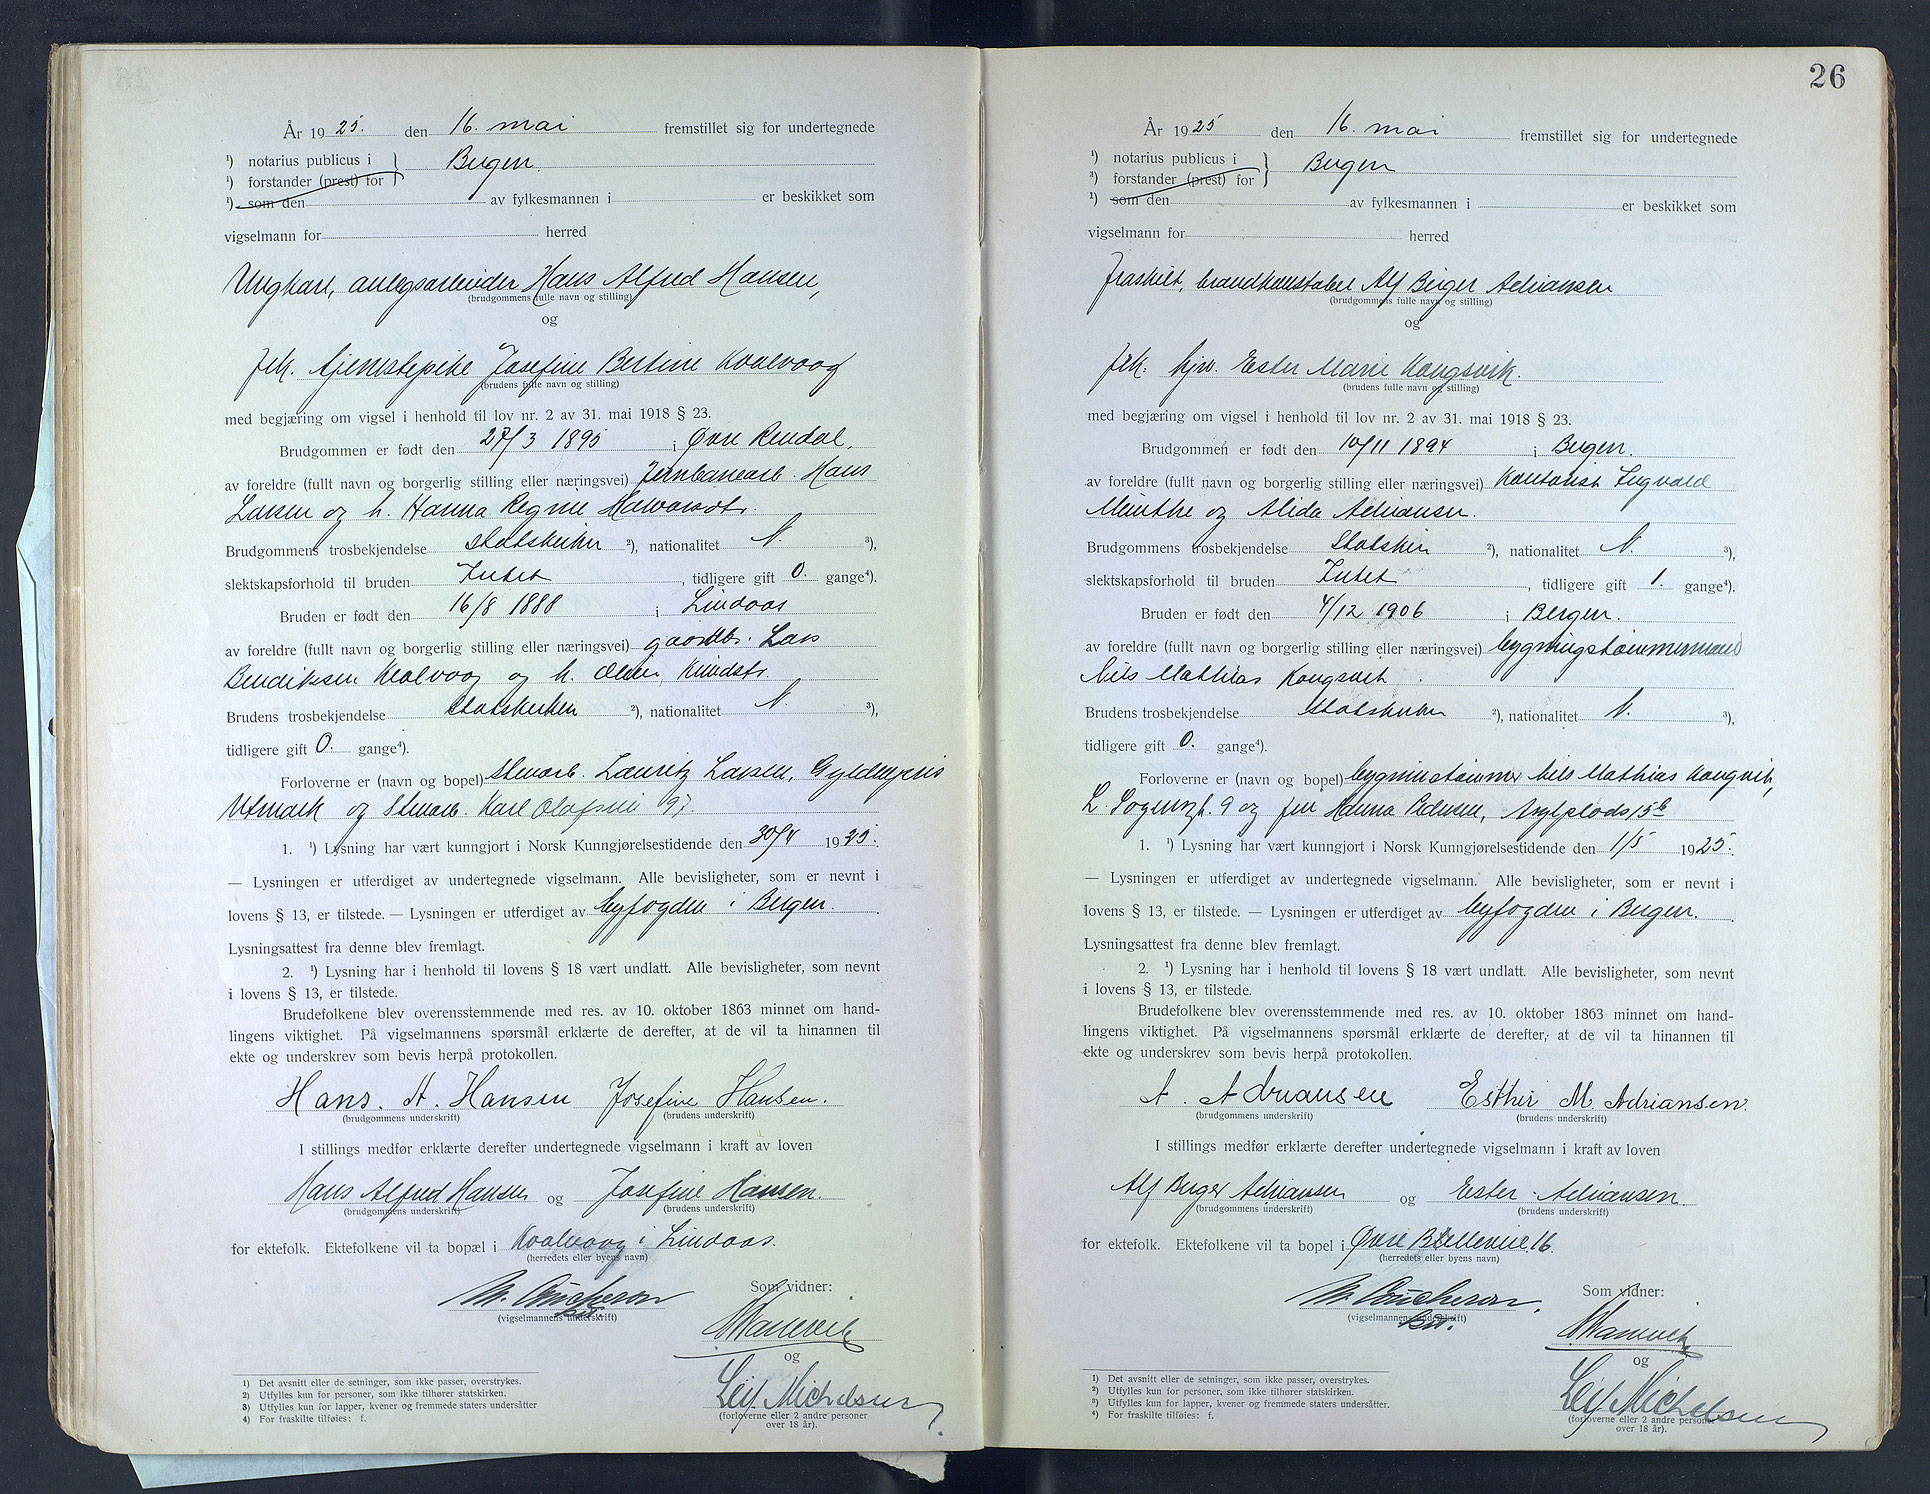 År 1925. den 16. mai fremstillet sig for undertegnede
¹) notarius publicus i } Bergen.
¹) forstander (prest) for
¹) som den av fylkesmannen i er beskikket som
vigselmann for herred
Ungkarl, anlegsarbeider Hans Alfred Hansen,
(brudgommens fulle navn og stilling)
og
frk. tjenestepike Josefine Bertine Kvalvaag
(brudens fulle navn og stilling)
med begjæring om vigsel i henhold til lov nr. 2 av 31. mai 1918 § 23.
Brudgommen er født den 27/3 1895 i Øvre Rendal,
av foreldre (fullt navn og borgerlig stilling eller næringsvei) Jernbanearb. Hans
Larsen og h. Hanna Regine Halvorsdtr.
Brudgommens trosbekjendelse Statskirken ²), nationalitet N. ³),
slektskapsforhold til bruden Intet, tidligere gift 0. gange⁴).
Bruden er født den 16/8 1888 i Lindaas
av foreldre (fullt navn og borgerlig stilling eller næringsvei) gaardbr. Lars
Bendiksen Kvalvaag og h. Oline Knudsdtr.
Brudens trosbekjendelse Statskirken ²), nationalitet N. ³),
tidligere gift 0. gange⁴).
Forloverne er (navn og bopel) Stenarb. Lauritz Larsen, Gyldenpris
Utmark og Stenarb. Karl Olafsen 97.
1. ¹) Lysning har vært kunngjort i Norsk Kunngjørelsestidende den 30/4 1925.
— Lysningen er utferdiget av undertegnede vigselmann. Alle bevisligheter, som er nevnt i
lovens § 13, er tilstede. — Lysningen er utferdiget av byfogden i Bergen.
Lysningsattest fra denne blev fremlagt.
2. ¹) Lysning har i henhold til lovens § 18 vært undlatt. Alle bevisligheter, som nevnt
i lovens § 13, er tilstede.
Brudefolkene blev overensstemmende med res. av 10. oktober 1863 minnet om hand-
lingens viktighet. På vigselmannens spørsmål erklærte de derefter, at de vil ta hinannen til
ekte og underskrev som bevis herpå protokollen.
Hans. A. Hansen Josefine Hansen.
(brudgommens underskrift) (brudens underskrift)
I stillings medfør erklærte derefter undertegnede vigselmann i kraft av loven
Hans Alfred Hansen og Josefine Hansen.
(brudgommens underskrift) (brudens underskrift)
for ektefolk. Ektefolkene vil ta bopæl i Kvalvaag i Lindaas.
(herredets eller byens navn)
Som vidner:
(vigselmannens underskrift)
og
Leif Michelsen
(forloverne eller 2 andre personer
over 18 år).
1) Det avsnitt eller de setninger, som ikke passer, overstrykes.
2) Utfylles kun for personer, som ikke tilhører statskirken.
3) Utfylles kun for lapper, kvener og fremmede staters undersåtter
4) For fraskilte tilføies: f.
26
År 1925 den 16. mai fremstillet sig for undertegnede
¹) notarius publicus i } Bergen
²) forstander (prest) for
¹) som den av fylkesmannen i er beskikket som
vigselmann for herred
fraskilt, brandkonstabel Alf Birger Adriansen
(brudgommens fulle navn og stilling)
og
frk. hjv. Ester Marie Kongsvik.
(brudens fulle navn og stilling)
med begjæring om vigsel i henhold til lov nr. 2 av 31. mai 1918 § 23.
Brudgommen er født den 10/11 1894 i Bergen.
av foreldre (fullt navn og borgerlig stilling eller næringsvei) Kontorist Ingvald
Meinthe og Alida Adriansen.
Brudgommens trosbekjendelse Statskir ²), nationalitet N. ³),
slektskapsforhold til bruden Intet, tidligere gift 1. gange⁴).
Bruden er født den 4/12 1906 i Bergen.
av foreldre (fullt navn og borgerlig stilling eller næringsvei) bygningstømmermand
Nils Mathias Kongsvik.
Brudens trosbekjendelse Statskirken ²), nationalitet N. ³),
tidligere gift 0. gange⁴).
Forloverne er (navn og bopel) bygningstømmer Nils Mathias Kongsvik,
9 og fru Hanna Pedersen, Asylplads 15b
1. ¹) Lysning har vært kunngjort i Norsk Kunngjørelsestidende den 1/5 1925.
— Lysningen er utferdiget av undertegnede vigselmann. Alle bevisligheter, som er nevnt i
lovens § 13, er tilstede. — Lysningen er utferdiget av byfogden i Bergen.
Lysningsattest fra denne blev fremlagt.
2. ¹) Lysning har i henhold til lovens § 18 vært undlatt. Alle bevisligheter, som nevnt
i lovens § 13, er tilstede.
Brudefolkene blev overensstemmende med res. av 10. oktober 1863 minnet om hand-
lingens viktighet. På vigselmannens spørsmål erklærte de derefter, at de vil ta hinannen til
ekte og underskrev som bevis herpå protokollen.
A. Adriansen Esther M. Adriansen.
(brudgommens underskrift) (brudens underskrift)
I stillings medfør erklærte derefter undertegnede vigselmann i kraft av loven
Alf Birger Adriansen og Ester Adriansen.
(brudgommens underskrift) (brudens underskrift)
for ektefolk. Ektefolkene vil ta bopel i Øvre Bellevue 16.
(herredets eller byens navn)
Som vidner:
(vigselmannens underskrift)
og
Leif Michelsen
(forloverne eller 2 andre personer
over 18 år).
1) Det avsnitt eller de setninger, som ikke passer, overstrykes.
2) Utfylles kun for personer, som ikke tilhører statskirken.
3) Utfylles kun for lapper, kvener og fremmede staters undersåtter.
4) For fraskilte tilføies: f.